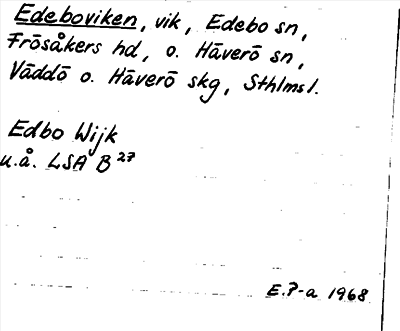 Edeboviken, vik, Edebo sn,
Frösåkers hd, o. Häverö sn,
Väddö o. Häverö skg, Sthlmsl.
Edbo Wijk
u.å. LSA B 27
E.P-a 1968